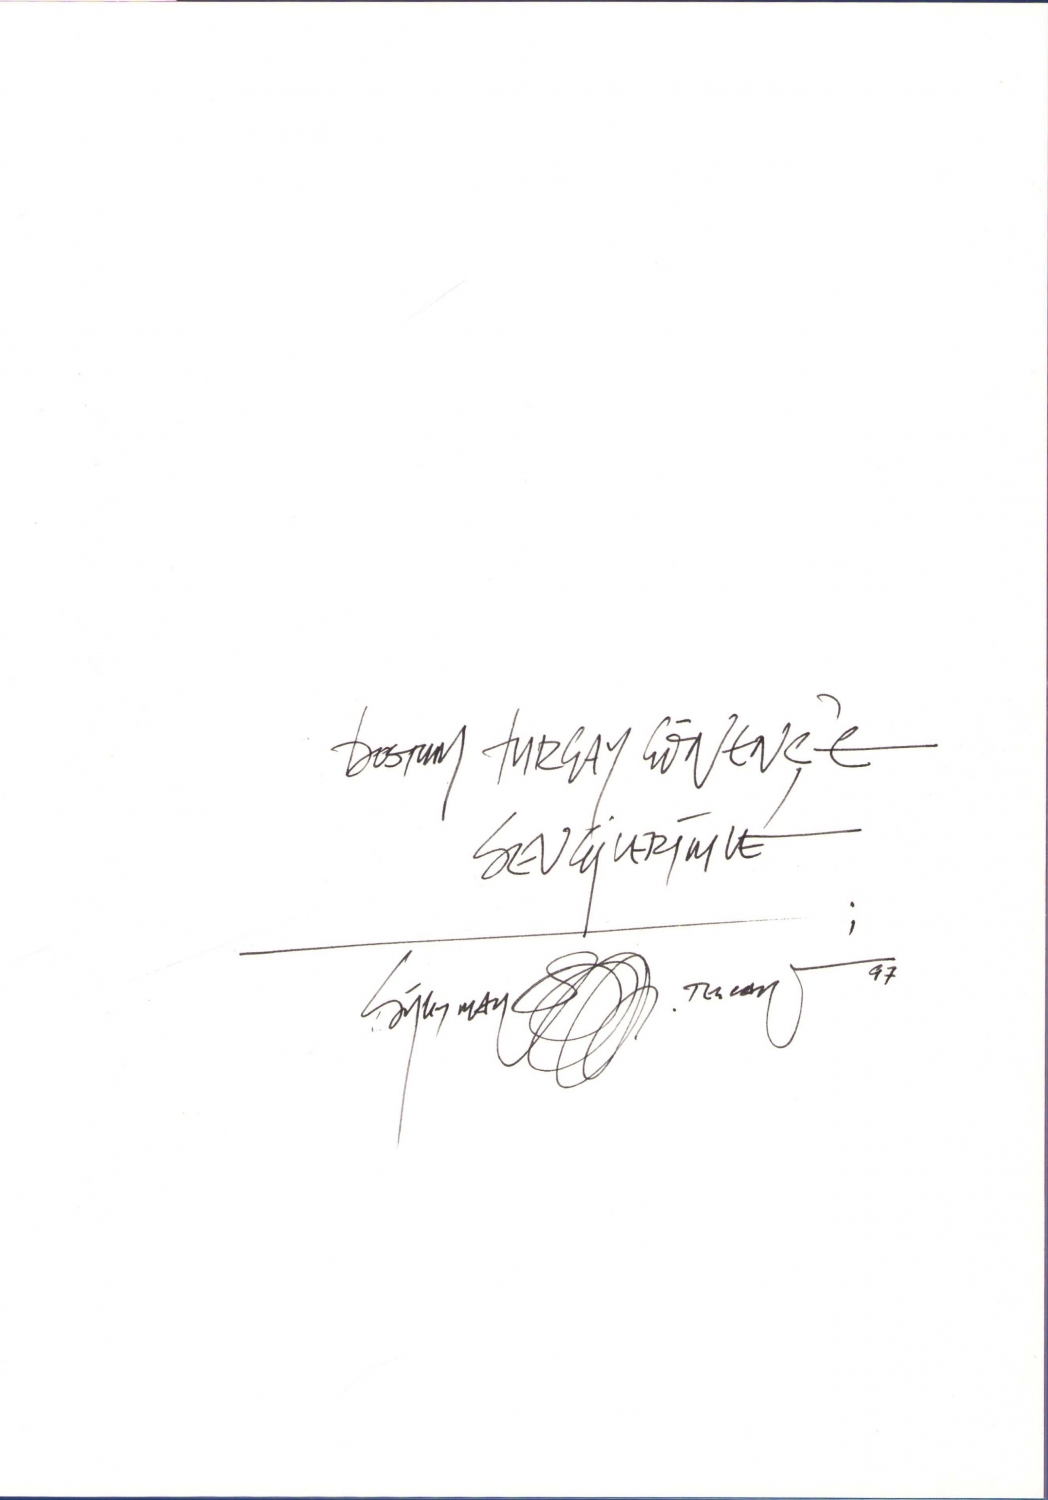 DOSTUM TURGAY GÖNENÇ'E
SEVGİLERİMLE
;
SÜLEYMAN . TEKCAN
97